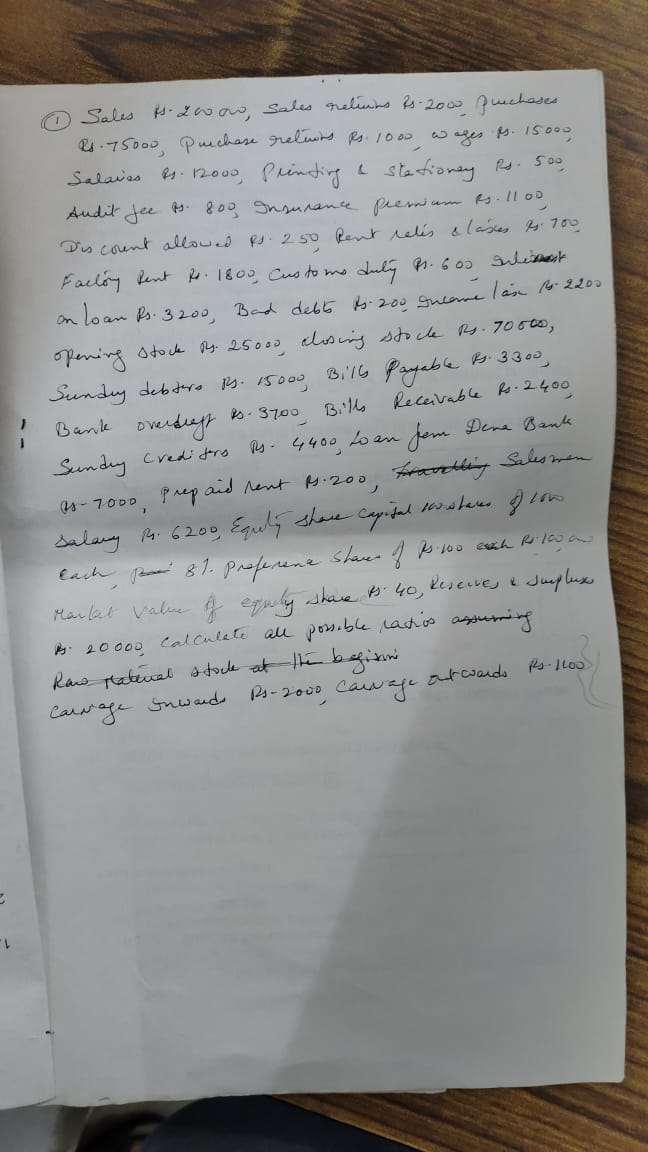 ① Sales Rs. 200000, Sales returns Rs. 2000, Purchases
Rs. 75000, Purchase returns Rs. 1000, wages Rs. 15000,
Salaries Rs. 12000, Printing & Stationery Rs. 500,
Audit fee Rs. 800, Insurance premium Rs. 1100,
Discount allowed Rs. 250, Rent rates & taxes Rs. 700,
Factory Rent Rs. 1800, Customs duty Rs. 600, Interest
on loan Rs. 3200, Bad debts Rs. 200, Income tax Rs. 2200
opening stock Rs. 25000, closing stock Rs. 70000,
Sundry debtors Rs. 15000, Bills Payable Rs. 3300,
Bank overdraft Rs. 3700, Bills Receivable Rs. 2400,
Sundry creditors Rs. 4400, Loan from Dena Bank
Rs. 7000, Prepaid rent Rs. 200, Travelling Salesmen
Salary Rs. 6200, Equity share capital shares of
each, 8% Preference Shares of Rs. 100 each
Market Value of equity share Rs. 40, Reserves & surplus
Rs. 20000, Calculate all possible ratios assuming
Raw material stock at the
Carriage Inwards Rs. 2000, Carriage outwards Rs. 1100